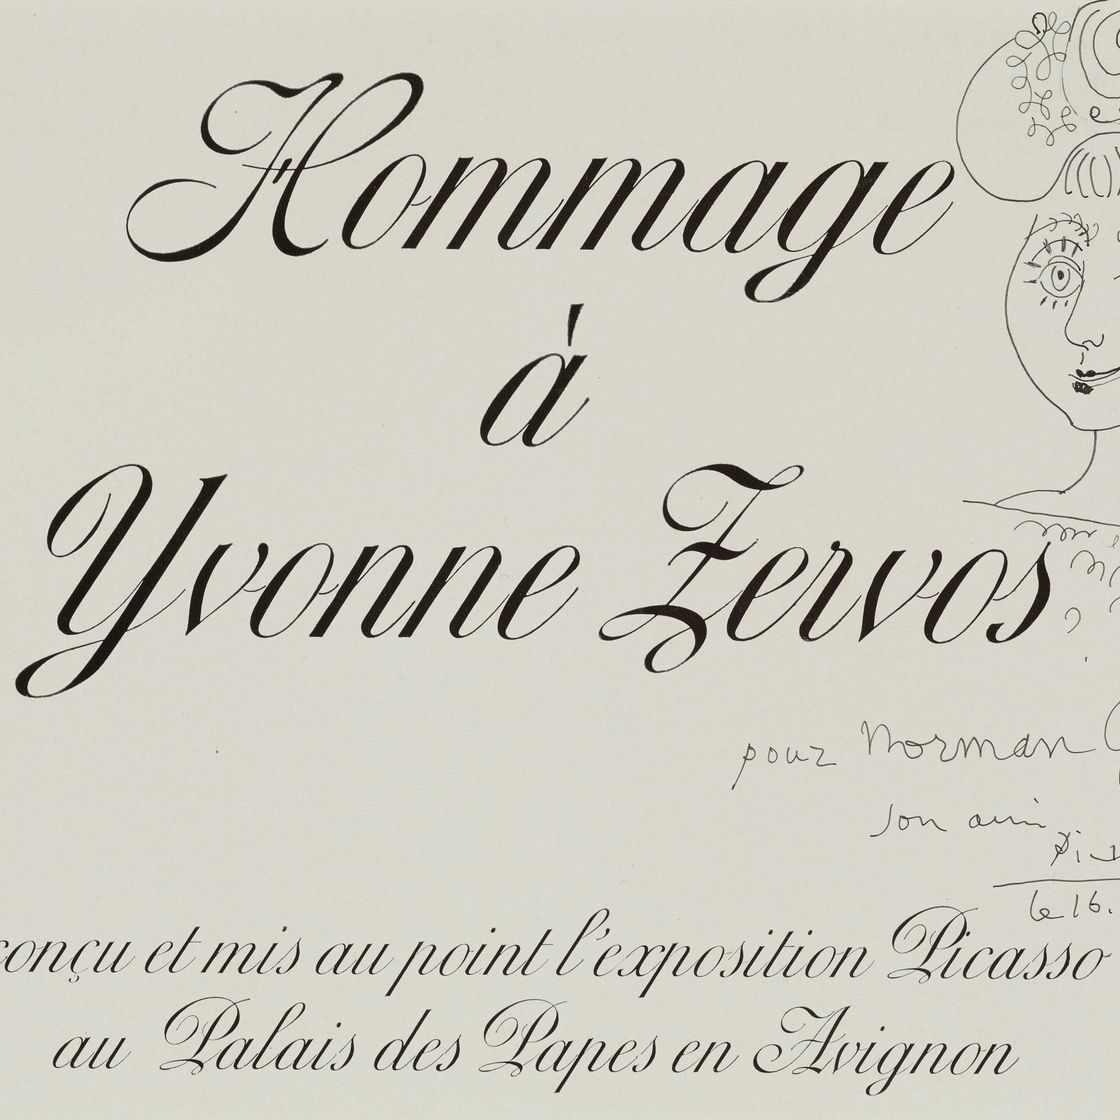 Hommage
à
Yvonne Zervos
pour Norman
son ami
le 16.
conçu et mis au point l'exposition Picasso
au Palais des Papes en Avignon